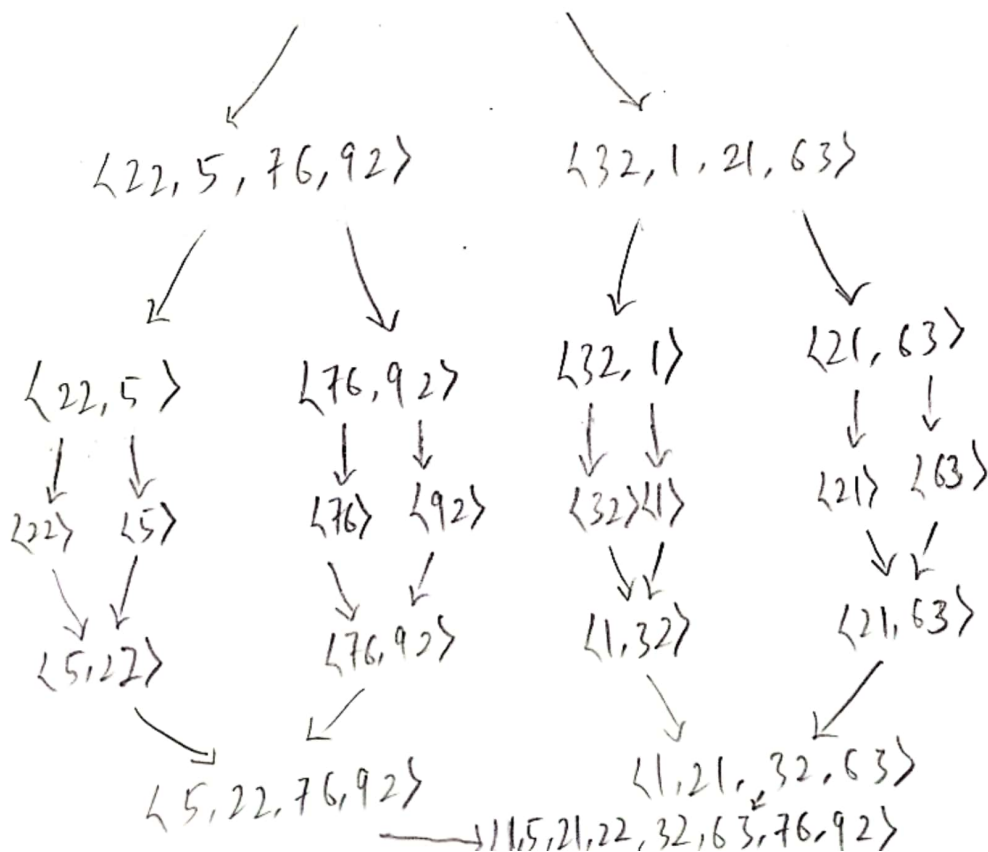 ⟨22, 5, 76, 92⟩ ⟨32, 1, 21, 63⟩
⟨22, 5⟩ ⟨76, 92⟩ ⟨32, 1⟩ ⟨21, 63⟩
⟨22⟩ ⟨5⟩ ⟨76⟩ ⟨92⟩ ⟨32⟩ ⟨1⟩ ⟨21⟩ ⟨63⟩
⟨5, 22⟩ ⟨76, 92⟩ ⟨1, 32⟩ ⟨21, 63⟩
⟨5, 22, 76, 92⟩ ⟨1, 21, 32, 63⟩
⟨1, 5, 21, 22, 32, 63, 76, 92⟩